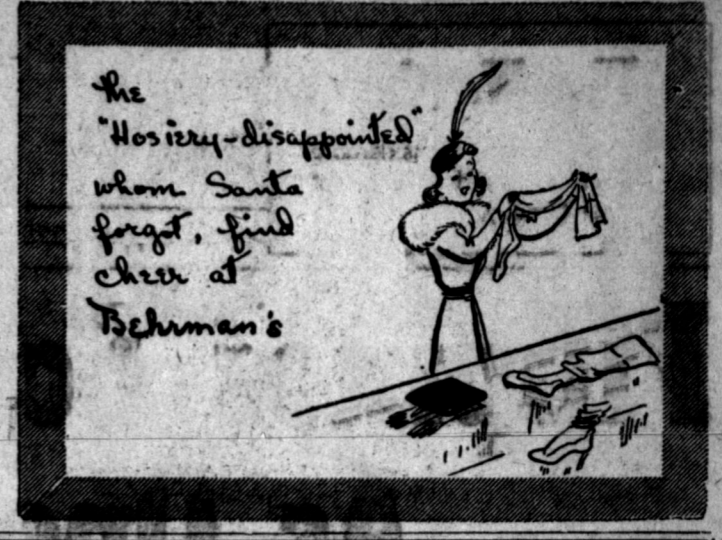 The
"Hosiery-disappointed"
whom Santa
forgot, find
cheer at
Behrman's